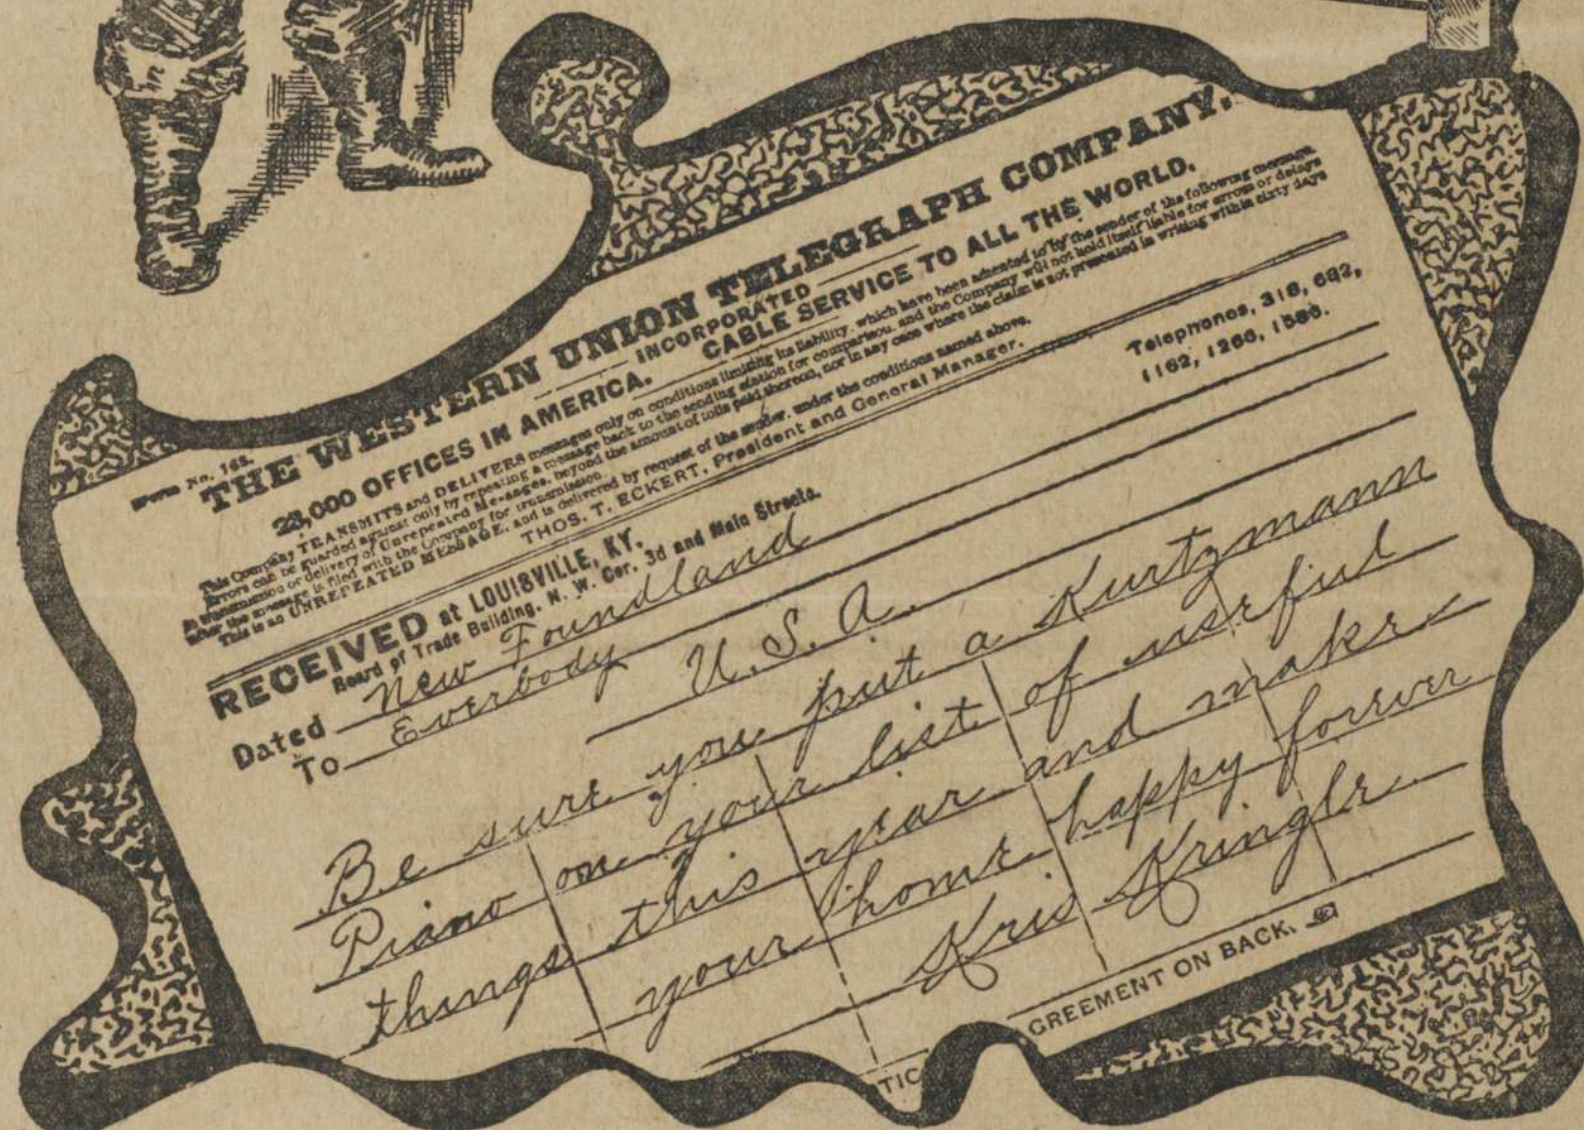 Form No. 168.
THE WESTERN UNION TELEGRAPH COMPANY.
INCORPORATED
23,000 OFFICES IN AMERICA. CABLE SERVICE TO ALL THE WORLD.
This Company TRANSMITS and DELIVERS messages only on conditions limiting its liability, which have been assented to by the sender of the following message.
Errors can be guarded against only by repeating a message back to the sending station for comparison, and the Company will not hold itself liable for errors or delays
in transmission or delivery of Unrepeated Messages, beyond the amount of tolls paid thereon, nor in any case where the claim is not presented in writing within sixty days
after the message is filed with the Company for transmission.
This is an UNREPEATED MESSAGE, and is delivered by request of the sender, under the conditions named above.
THOS. T. ECKERT, President and General Manager.
RECEIVED at LOUISVILLE, KY.
Board of Trade Building, N. W. Cor. 3d and Main Streets.
Telephones, 318, 692,
1162, 1266, 1586.
Dated New Foundland
To Everbody U.S.A.
Be sure you put a Kurtzmann
Piano on your list of useful
things this year and make
your home happy forever
Kris Kringle
TIC GREEMENT ON BACK.